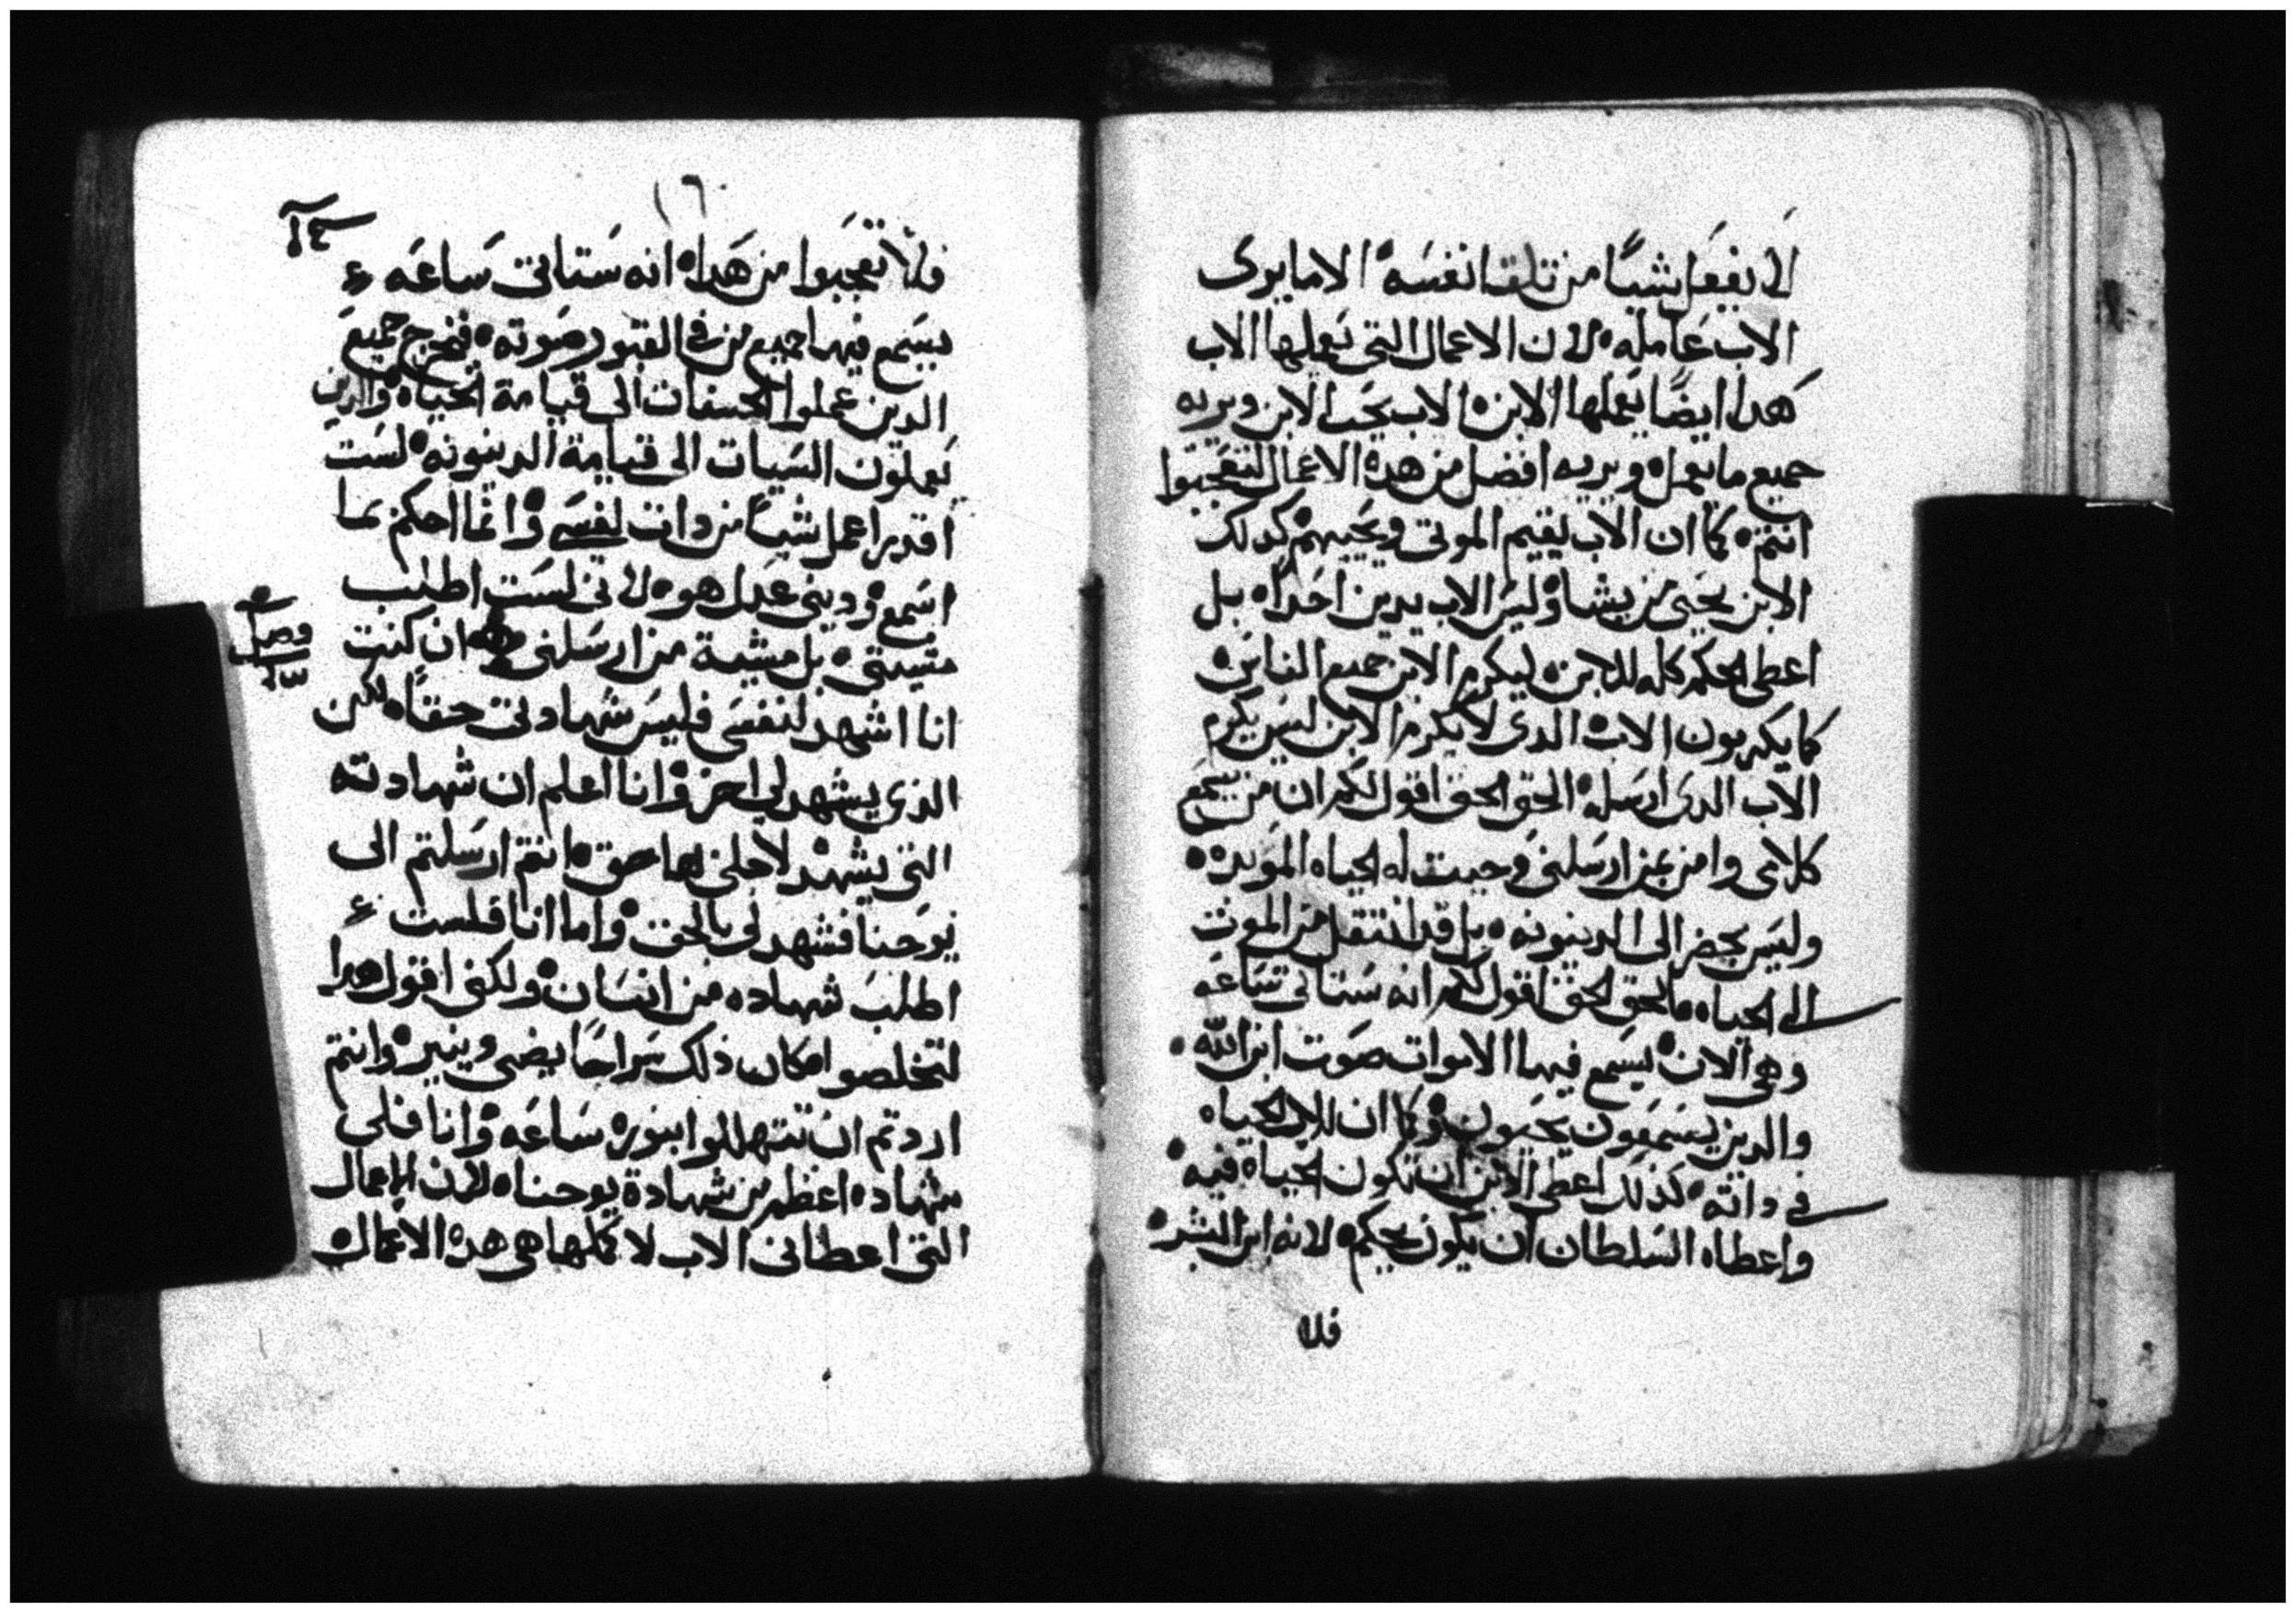 ان يفعل شيئًا من تلقا نفسه الا ما يرى
الاب عامله لان الاعمال التي يعملها الاب
هدا ايضًا يعملها الابن الاب يحب الابن ويريه
جميع ما يعمل ويريه افضل من هده الاعمال لتتعجبوا
انتم كما ان الاب يقيم الموتى ويحييهم كدلك
الابن يحيى من يشا وليس الاب يدين احدًا بل
اعطى الحكم كله للابن ليكرم الابن جميع الناس
كما يكرمون الاب الدى لا يكرم الابن ليس يكرم
الاب الدى ارسله الحق الحق اقول لكم ان من يسمع
كلامى وامن بمن ارسلنى وجبت له الحياه الموبده
وليس يحضر الى الدينونه بل قد انتقل من الموت
الى الحياه الحق الحق اقول لكم انه ستاتى ساعه
وهى الان يسمع فيها الاموات صوت ابن الله
والدين يسمعون يحيون وكما ان للاب الحياه
فى داته كدلك اعطى الابن ان تكون الحياه فيه
واعطاه السلطان ان يكون يحكم لانه ابن البشر
فلا
١٦
فلا تعجبوا من هدا انه ستاتى ساعه
يسمع فيها جميع من فى القبور صوته فيخرج جميع
الدين عملوا الحسنات الى قيامة الحياه والدين
يعملون السيات الى قيامة الدينونه لست
اقدر اعمل شيئًا من دات نفسى وانما احكم بما
اسمع ودينى عدل هو لانى لست اطلب
مشيتى بل مشية من ارسلنى ان كنت
فصل
انا اشهد لنفسى فليس شهادتى حقًا لكن
الذى يشهد لى اخر وانا اعلم ان شهادته
التى يشهد لاجلى انها حق انتم ارسلتم الى
يوحنا فشهد لى بالحق واما انا فلست
اطلب شهاده من انسان ولكنى اقول هدا
لتخلصوا كان ذلك سراجًا يضى وينير وانتم
اردتم ان تتهللوا بنوره ساعه وانا فلى
شهاده اعظم من شهادة يوحنا لان الاعمال
التى اعطانى الاب لاكملها هى هده الاعمال